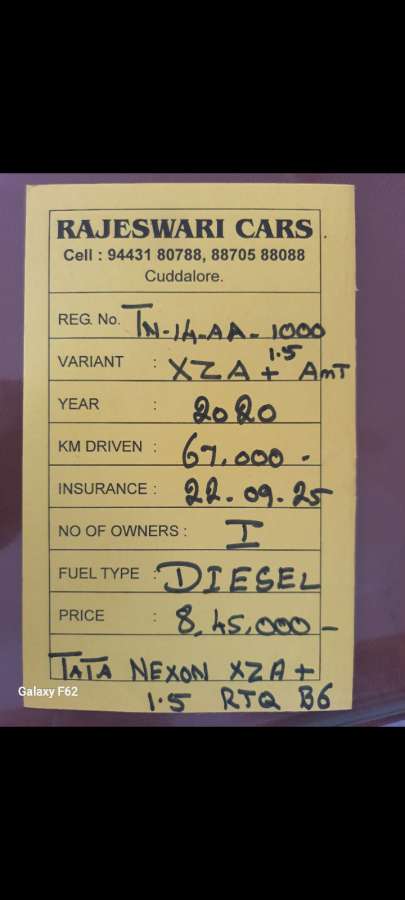 RAJESWARI CARS.
Cell : 94431 80788, 88705 88088
Cuddalore.
REG. No. TN-14-AA-1000
VARIANT : XZA+ 1.5 AMT
YEAR : 2020
KM DRIVEN : 67,000 -
INSURANCE : 22.09.25
NO OF OWNERS : I
FUEL TYPE : DIESEL
PRICE : 8,45,000 -
TATA NEXON XZA+
1.5 RTQ B6
Galaxy F62